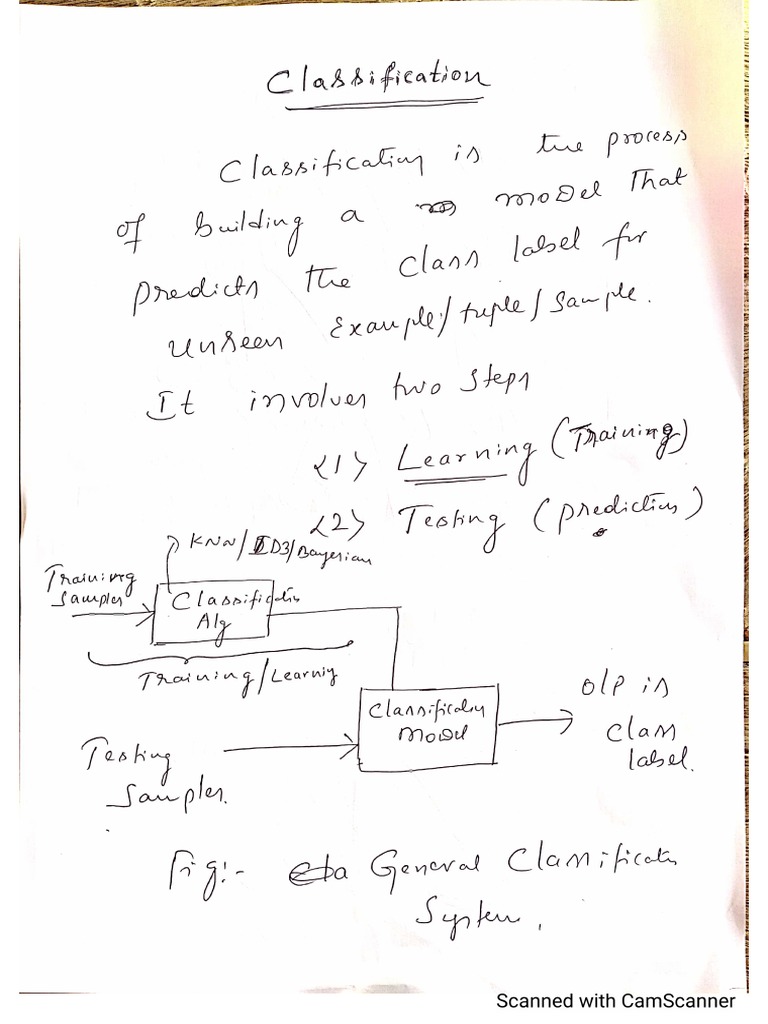 Classification
Classification is the process
of building a model That
predicts the class label for
unseen Example/tuple/sample.
It involves two steps
<1> Learning (Training)
<2> Testing (prediction)
KNN/ID3/Bayesian
Training
Samples
Classification
Alg
Training/Learning
Classification
Model
O/P is
class
label.
Testing
Samples.
Fig:- a General Classification
System.
Scanned with CamScanner